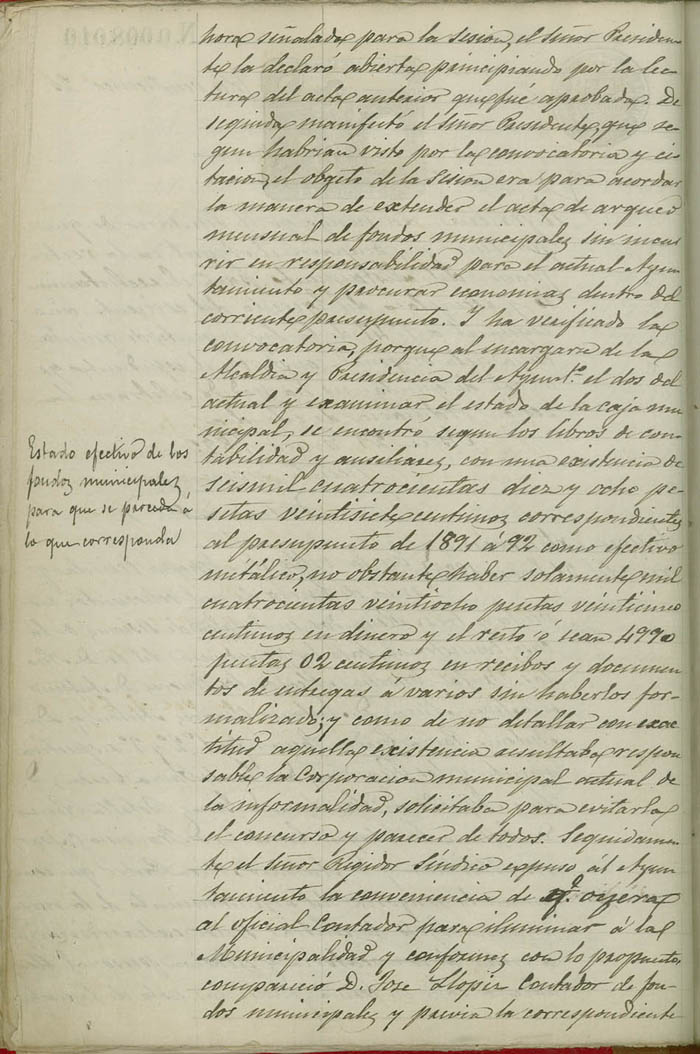 hora señalada para la sesion, el señor Presiden-
te la declaró abierta principiando por la lec-
tura del acta anterior que fué aprobada. De
seguida manifestó el señor Presidente, que se-
gun habrian visto por la convocatoria y ci-
tacion, el objeto de la sesion era para acordar
la manera de extender el acta de arqueo
mensual de fondos municipales sin incur-
rir en responsabilidad para el actual Ayun-
tamiento y procurar economias dentro del
corriente presupuesto. Y ha verificado la
convocatoria, porque al incargarse de la
Alcaldia y Presidencia del Ayunt.º el dos del
actual y examinar el estado de la caja mu-
nicipal, se encontró segun los libros de con-
Estado efectivo de los
fondos municipales
para que se proceda á
lo que corresponda
tabilidad y auxiliares, con una existencia de
seismil cuatrocientas diez y ocho pe-
setas veintisiete centimos correspondientes
al presupuesto de 1891 á 92 como efectivo
metálico, no obstante haber solamente mil
cuatrocientas veintiocho pesetas veinticinco
centimos en dinero y el resto ó sean 4990
pesetas 02 centimos en recibos y documen-
tos de entregas á varios sin haberlos for-
malizado; y como de no detallar con exac-
titud aquella existencia resultaba respon-
sable la Corporacion municipal actual de
la informalidad, solicitaba para evitarla
el concurso y parecer de todos. Seguidamen-
te el señor Regidor Síndico expuso ál Ayun-
tamiento la conveniencia de q.º oyera
al oficial Contador para iluminar á la
Municipalidad y conformes con lo propuesto,
compareció D. Jose Llopis Contador de fon-
dos municipales y previa la correspondiente